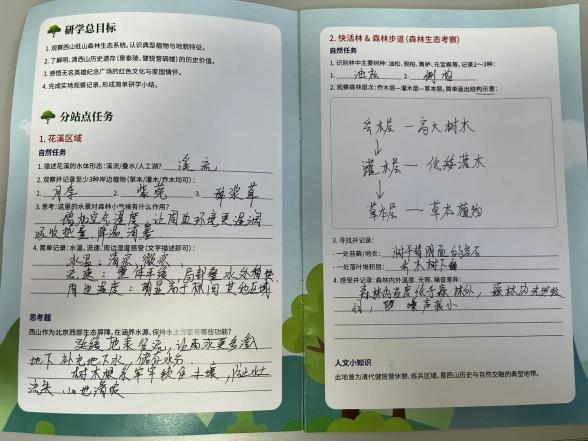 研学总目标
1. 观察西山低山森林生态系统，认识典型植物与地貌特征。
2. 了解明、清西山历史遗存（景泰陵、健锐营碉楼）的历史价值。
3. 感悟无名英雄纪念广场的红色文化与家国情怀。
4. 完成实地观察记录，形成简单研学小结。
分站点任务
1. 花溪区域
自然任务
1. 描述花溪的水体形态：溪流/叠水/人工湖？ 溪流
2. 观察并记录至少3种岸边植物（草本/灌木/乔木均可）：
1. 月季 2. 紫菀 3. 酢浆草
3. 思考：这里的水景对森林小气候有什么作用？
增加空气湿度，让周边环境更湿润
吸收热量，降温消暑
4. 简单记录：水温、流速、周边湿度感受（文字描述即可）：
水温：清凉、微凉
流速：整体平缓，局部叠水处稍快
周边湿度：明显高于林间其他区域
思考题
西山作为北京西部生态屏障，在涵养水源、保持水土方面有哪些功能？
延缓地表径流，让雨水更多渗
地下 补充地下水，储存水分
树木根系牢牢锁住土壤，防止水土
流失、山地滑坡
2. 快活林 & 森林步道（森林生态考察）
自然任务
1. 识别林中主要树种：油松、侧柏、黄栌、元宝枫等，记录2～3种：
1. 油松 2. 侧柏
2. 观察森林层次：乔木层—灌木层—草本层，简单画出结构示意：
乔木层 — 高大树木
↓
灌木层 — 低矮灌木
↓
草本层 — 草本植物
3. 寻找并记录：
一处苔藓/地衣： 树干背阴面的岩石
一处落叶堆积层： 乔木树下
4. 感受并记录：森林内外温度、光照、噪音差异：
森林内温度低于森林外，森林内光照
噪声较小
人文小知识
此地曾为清代健锐营休憩、练兵区域，是西山历史与自然交融的典型地带。